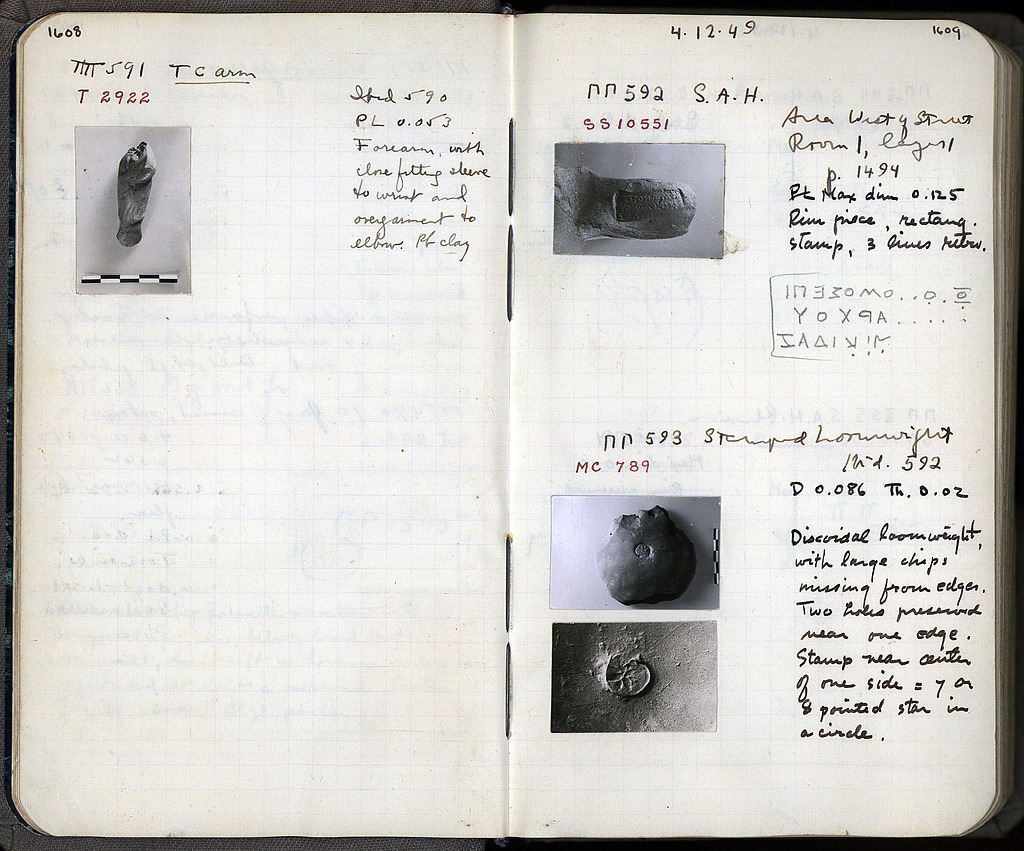 1608
ΠΠ 591 TC arm
T 2922
Ibid 590
PL 0.053
Forearm, with
close fitting sleeve
to wrist and
overgarment to
elbow. Pt clay
4.12.49
1609
ΠΠ 592 S.A.H.
SS 10551
Area West of Street
Room 1, layer 1
p. 1494
Pt Max dim 0.125
Rim piece, rectang.
stamp, 3 lines retro.
ΙΠΕΣΟΜΟ..Ο.Ο
ΥΟΧΡΑ......
ΣΑΔΙΚ
ΠΠ 593 Stamped Loomweight
Ibid. 592
MC 789
D 0.086 Th. 0.02
Discoidal loomweight,
with large chips
missing from edges.
Two holes preserved
near one edge.
Stamp near center
of one side = 7 or
8 pointed star in
a circle.